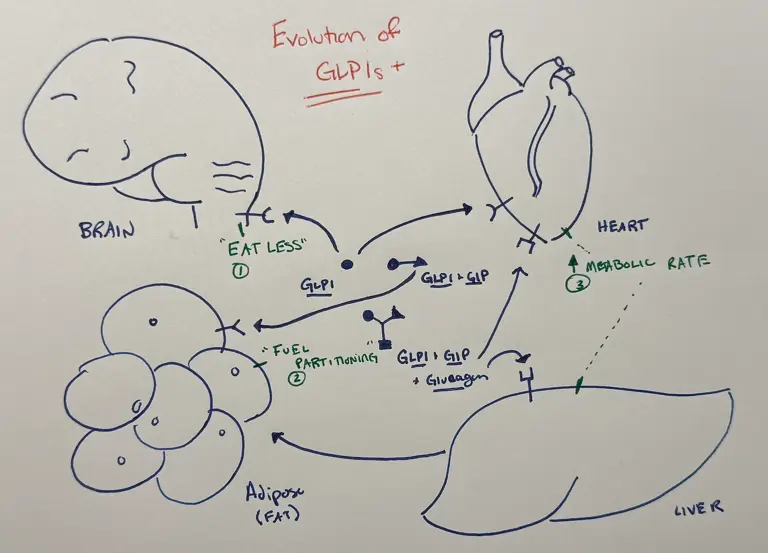 Evolution of
GLP1s +
BRAIN
"EAT LESS"
①
HEART
↑ METABOLIC RATE
③
GLP1
GLP1 + GIP
"FUEL
PARTITIONING"
②
GLP1 + GIP
+ Glucagon
Adipose
(FAT)
LIVER